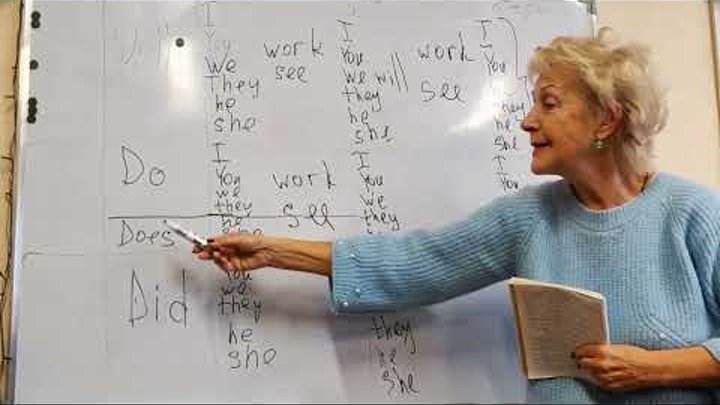 I
You
We
They
he
she
work
see
I
You
we will
they
he
she
work
see
I
You
They
he
she
I
You
Do
I
You
we
they
he
work
see
I
You
we
they
Does
Did
You
we
they
he
she
they
he
she